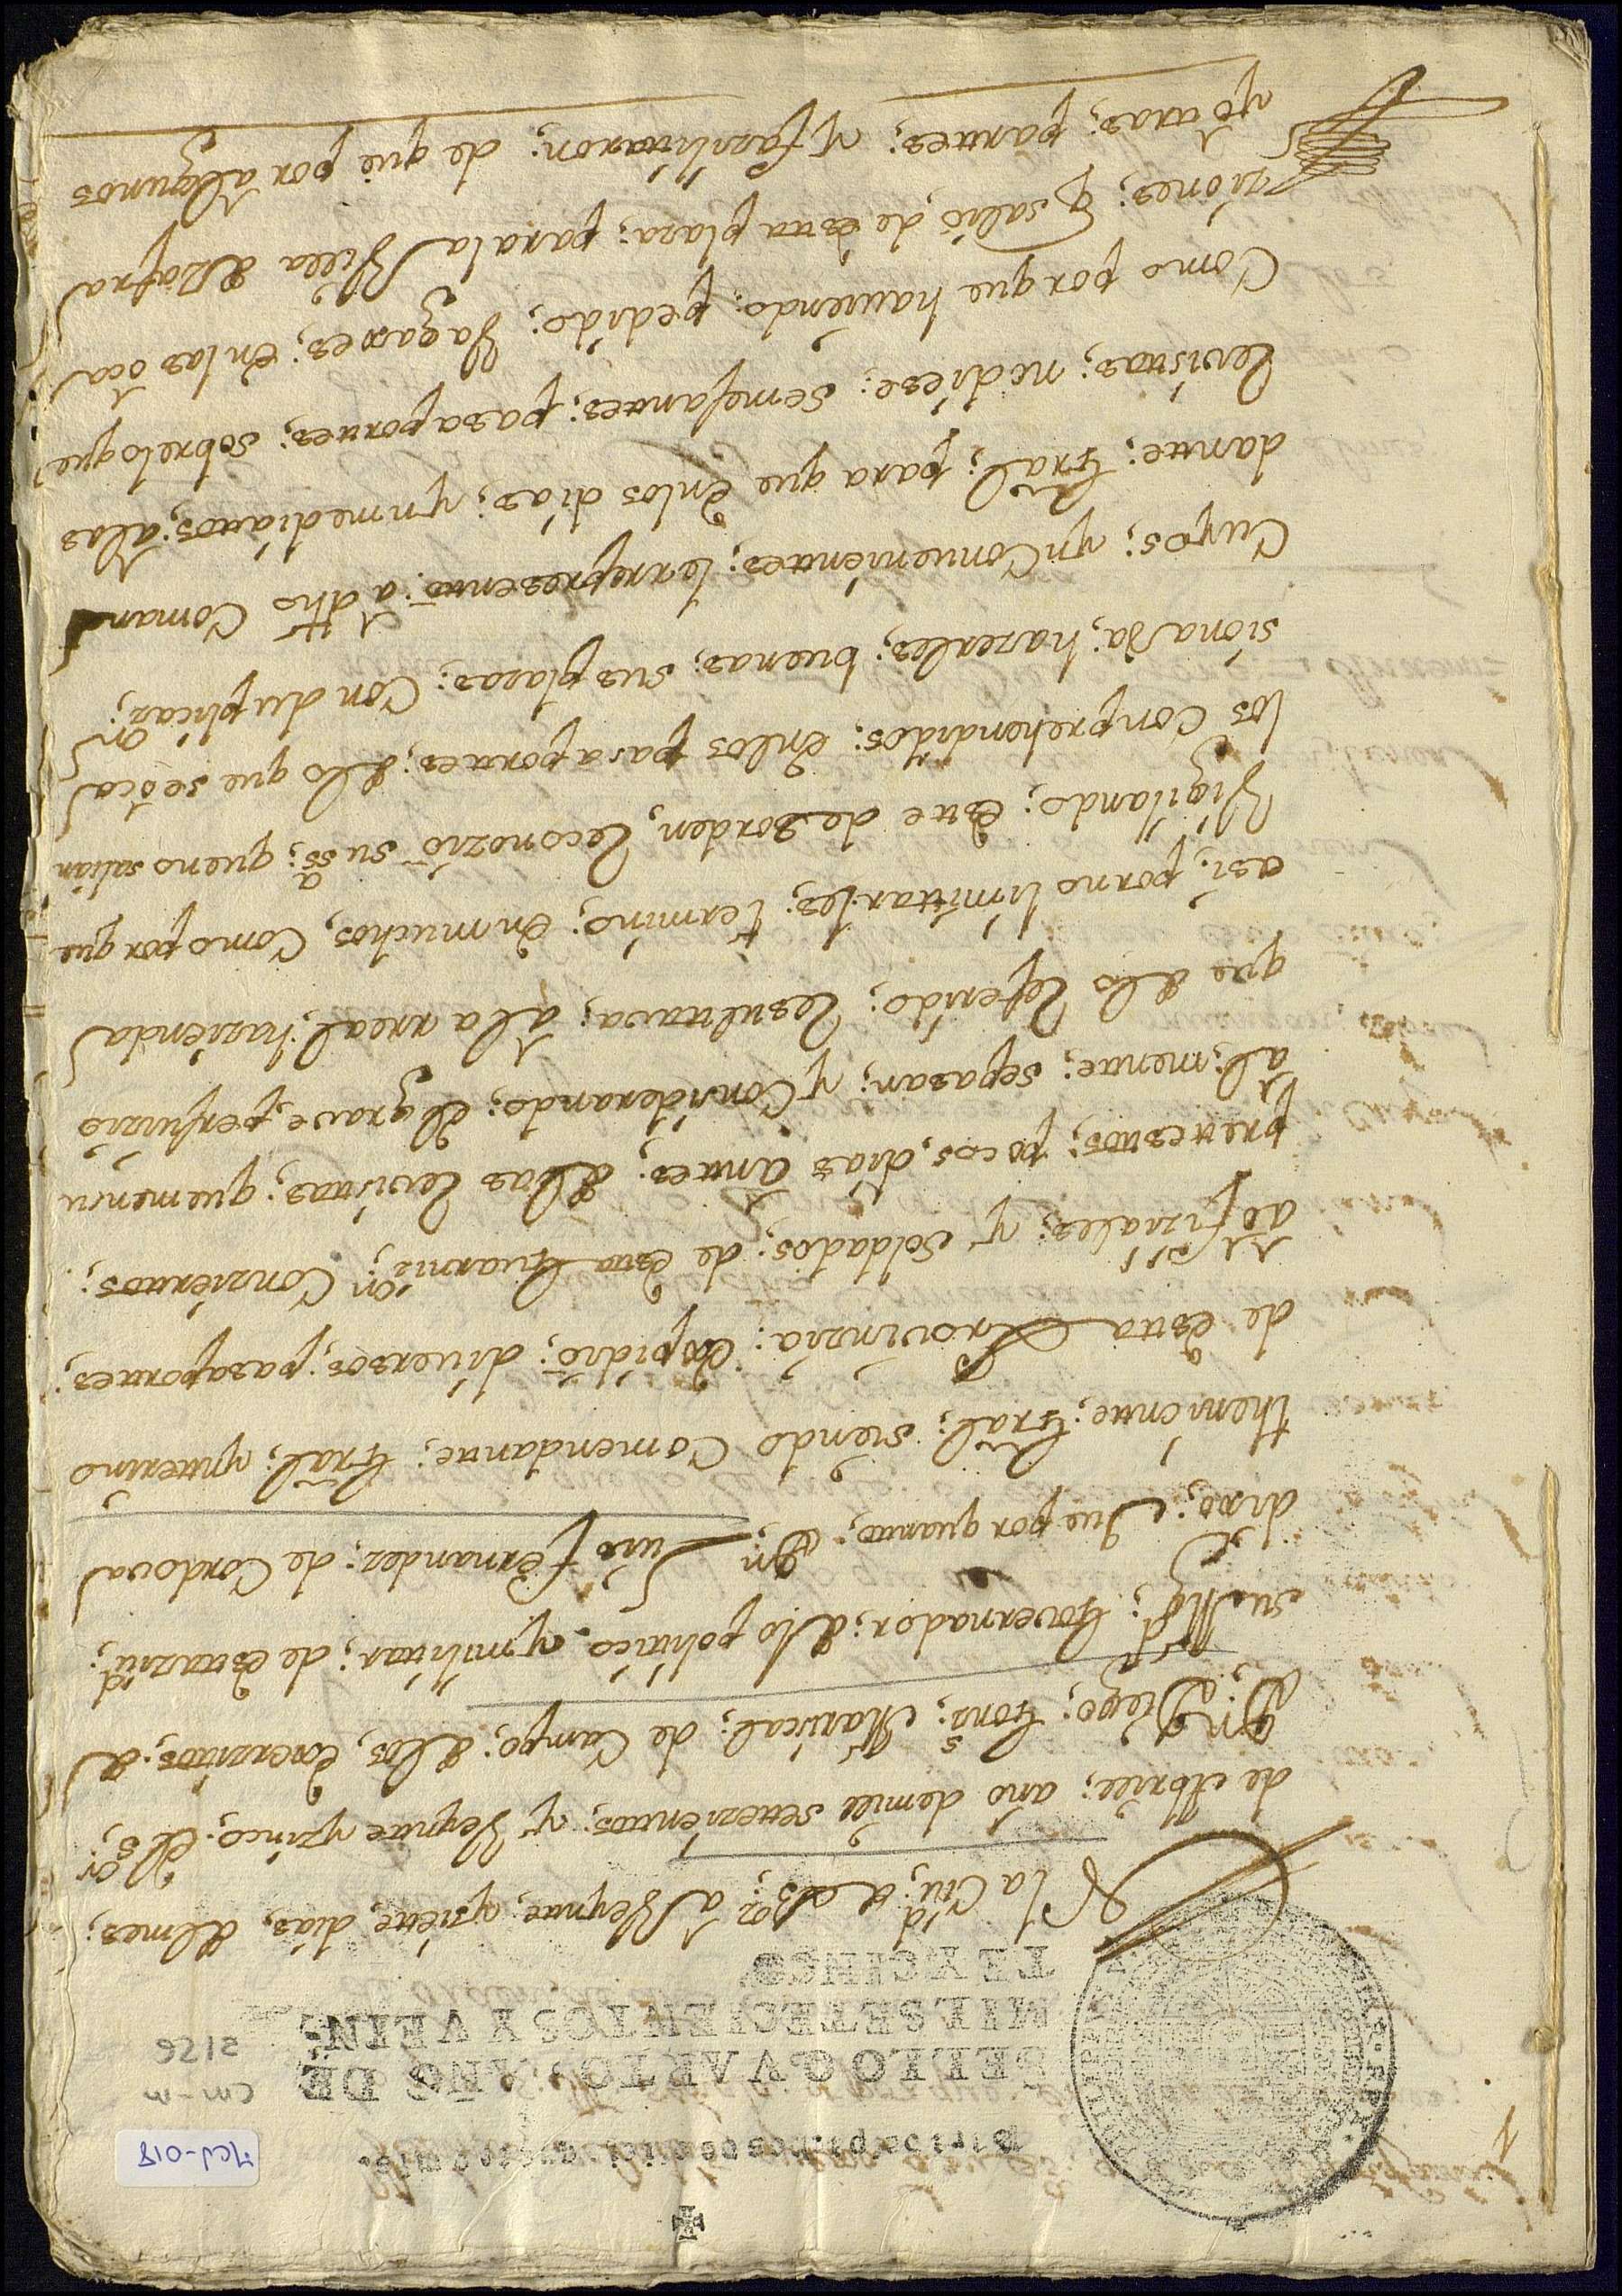 ✠
Para despachos de oficio quatro mrs.
SELLO QVARTO, AÑO DE
MIL SETECIENTOS Y VEIN-
TE Y CINCO.
Mcd-018
cm-m
2126
1
En la Ciud. de Bz. a Veynte y siete dias, del mes;
de Abrill; año demill settezientos; y Veynte y zinco. el sor.
Dn. Diego; Gons; Mariscal; de Campo; de los exerzitos; de
su Mgd.; Governador; de lo politico y militar; de esta ziud.
dixo; Que por quanto; Dn. Luis fernandez; de Cordova
thenientte; Gral; siendo Comendante; Gral; ynterino
de esta Provinzia; expidio; diversos; pasaportes;
a ofiziales; y soldados; de esta Guarnion. Conzientos;
prettestos; pocos, dias antes; de las Revistas; que mensu
almente; se pasan; y Considerando; el grave, perjuizio
que de lo Referido; Resultava; a la rreal, hazienda
asi, por no limittarles; termino; en muchos, como por que
Vigilando; este desorden, Reconozio su ssa; que no salian
los Comprehendidos; en los pasaportes; de lo que se oca
sionava; hazerles; buenas; sus plazas; Con duplicaz.on
Cuyos; ynConvenientes; le rrepresento; a dho Coman
dante; Gral; para que en los dias; ynmediattos; a las
Revistas; no diese; semejantes; pasaportes; sobre lo que
Como porque haviendo; pedido; Vagaxes; en las oca
ziones; q salio de esta plaza; para la Villa de Zafra
y otras; partes; y fazilitaron; de que por algunos